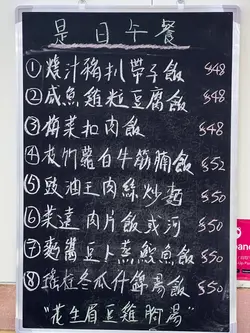 是日午餐
①燒汁豬扒帶子飯 $48
②咸魚雞粒豆腐飯 $48
③梅菜扣肉飯 $48
④枝竹蘿白牛筋腩飯 $52
⑤豉油王肉絲炒麵 $50
⑥菜遠肉片飯或河 $50
⑦麵醬豆卜蒸鯇魚飯 $50
⑧瑤柱冬瓜什錦湯飯 $50
"花生眉豆雞腳湯"